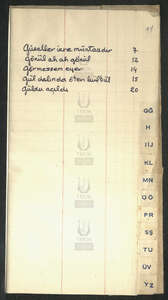 Güzeller içre müstasdır 7
Gönül ah ah gönül 12
Görmessem eyer 14
Gül dalında öten bülbül 15
Güldü açıldı 20
G
H
IİJ
KL
MN
OÖ
PR
SŞ
TU
ÜV
YZ